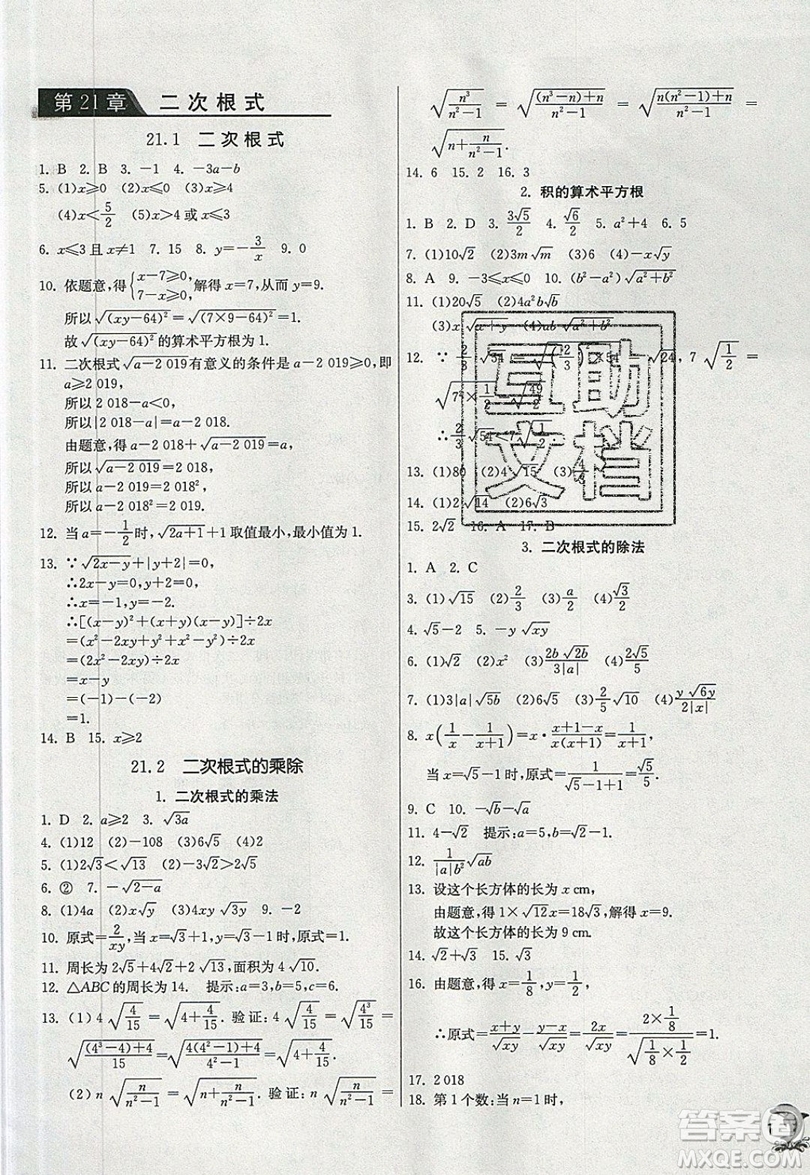 第21章 二次根式
21.1 二次根式
1. B 2. B 3. －1 4. －3a－b
5. (1)x≥0 (2)x≤0 (3)x≥0
(4)x＜5/2 (5)x＞0 (6)x≤0
6. x≤3 且 x≠1 7. 15 8. y＝－3/x 9. 0
10. 依题意，得{x－7≥0, 7－x≥0,解得 x＝7，从而 y＝9.
所以 √(xy－64)²＝√(7×9－64)²＝1.
故 √(xy－64)² 的算术平方根为 1.
11. 二次根式√(a－2 019)有意义的条件是 a－2 019≥0，即
a≥2 019.
所以 2 018－a＜0.
所以|2 018－a|＝a－2 018.
由题意，得 a－2 018＋√(a－2 019)＝a，
所以√(a－2 019)＝2 018，
所以 a－2 019＝2 018².
所以 a－2 018²＝2 019.
12. 当 a＝－1/2时，√(2a＋1)＋1取值最小，最小值为 1.
13. ∵√(2x－y)＋|y＋2|＝0，
∴2x－y＝0，y＋2＝0.
∴x＝－1，y＝－2.
∴[(x－y)²＋(x＋y)(x－y)]÷2x
＝(x²－2xy＋y²＋x²－y²)÷2x
＝(2x²－2xy)÷2x
＝x－y
＝(－1)－(－2)
＝1.
14. B 15. x≥2
21.2 二次根式的乘除
1. 二次根式的乘法
1. D 2. a≥2 3. √(3a)
4. (1)12 (2)－108 (3)6√5 (4)2
5. (1)2√3＜√13 (2)－4√2＞－√35
6. ② 7. －√(2－a)
8. (1)4a (2)x√y (3)2√5 (4)2xy √(3y) 9. －2
10. 原式＝2/(xy)，当 x＝√3＋1，y＝√3－1 时，原式＝1.
11. 周长为 2√5＋4√2＋2 √13，面积为 4 √10.
12. △ABC 的周长为 14. 提示：a＝3，b＝5，c＝6.
13. (1) 4 √(4/15)＝√(4＋4/15). 验证：4 √(4/15)＝√(4³/15)＝
√(((4³－4)＋4)/15)＝√((4(4²－1)＋4)/(4²－1))＝√(4＋4/15).
(2) n √(n/(n²－1))＝√(n＋n/(n²－1)). 验证：n √(n/(n²－1))＝
√(n³/(n²－1))＝√(((n³－n)＋n)/(n²－1))＝√((n(n²－1)＋n)/(n²－1))＝
√(n＋n/(n²－1)).
14. 6 15. 2 16. 3
2. 积的算术平方根
1. B 2. D 3. 3√5/2 4. √6/2 5. a²＋4 6. 5
7. (1)10√2 (2)3m√m (3)6 (4)－x√y
8. A 9. －3≤x≤0 10. (b²－a²)√(a²＋b²)
11. (1)20√5 (2)4a²b√b
12. ∵
∴
13. (1)80
14. (1)2√14 (2)6√3
15. 2√2 16. A 17. B
3. 二次根式的除法
1. A 2. C
3. (1)√15 (2)2/3 (3)a/2 (4)√(2/3)
4. √5－2 5. －y √(xy)
6. (1)√2 (2)x² (3)2b √(2b)/(3|a|) (4)2√5/5
7. (1)3|a|√(5b) (2)6√5 (3)2/5√10 (4)y √(6y)/(2|x|)
8. x(1/x－1/(x＋1))＝x·(x＋1－x)/(x(x＋1))＝1/(x＋1).
当 x＝√5－1 时，原式＝1/(√5－1＋1)＝1/√5＝√5/5.
9. C 10. －√b－√a
11. 4－√2 提示：a＝5，b＝1－√2.
12. 1/(|a|b²)√(ab)
13. 设这个长方体的长为 x cm，
由题意，得 1×√12x＝18√3，解得 x＝9.
故这个长方体的长为 9 cm.
14. √2＋√3 15. √3
16. 由题意，得 x＝1/8，y＝1/8，
∴原式＝(x＋y)/√(xy)－(y－x)/√(xy)＝2x/√(xy)＝(2×1/8)/√(1/8×1/2)＝1.
17. 2 018
18. 第 1 个数：当 n＝1 时，
互助
文档
答案
MXQE.COM